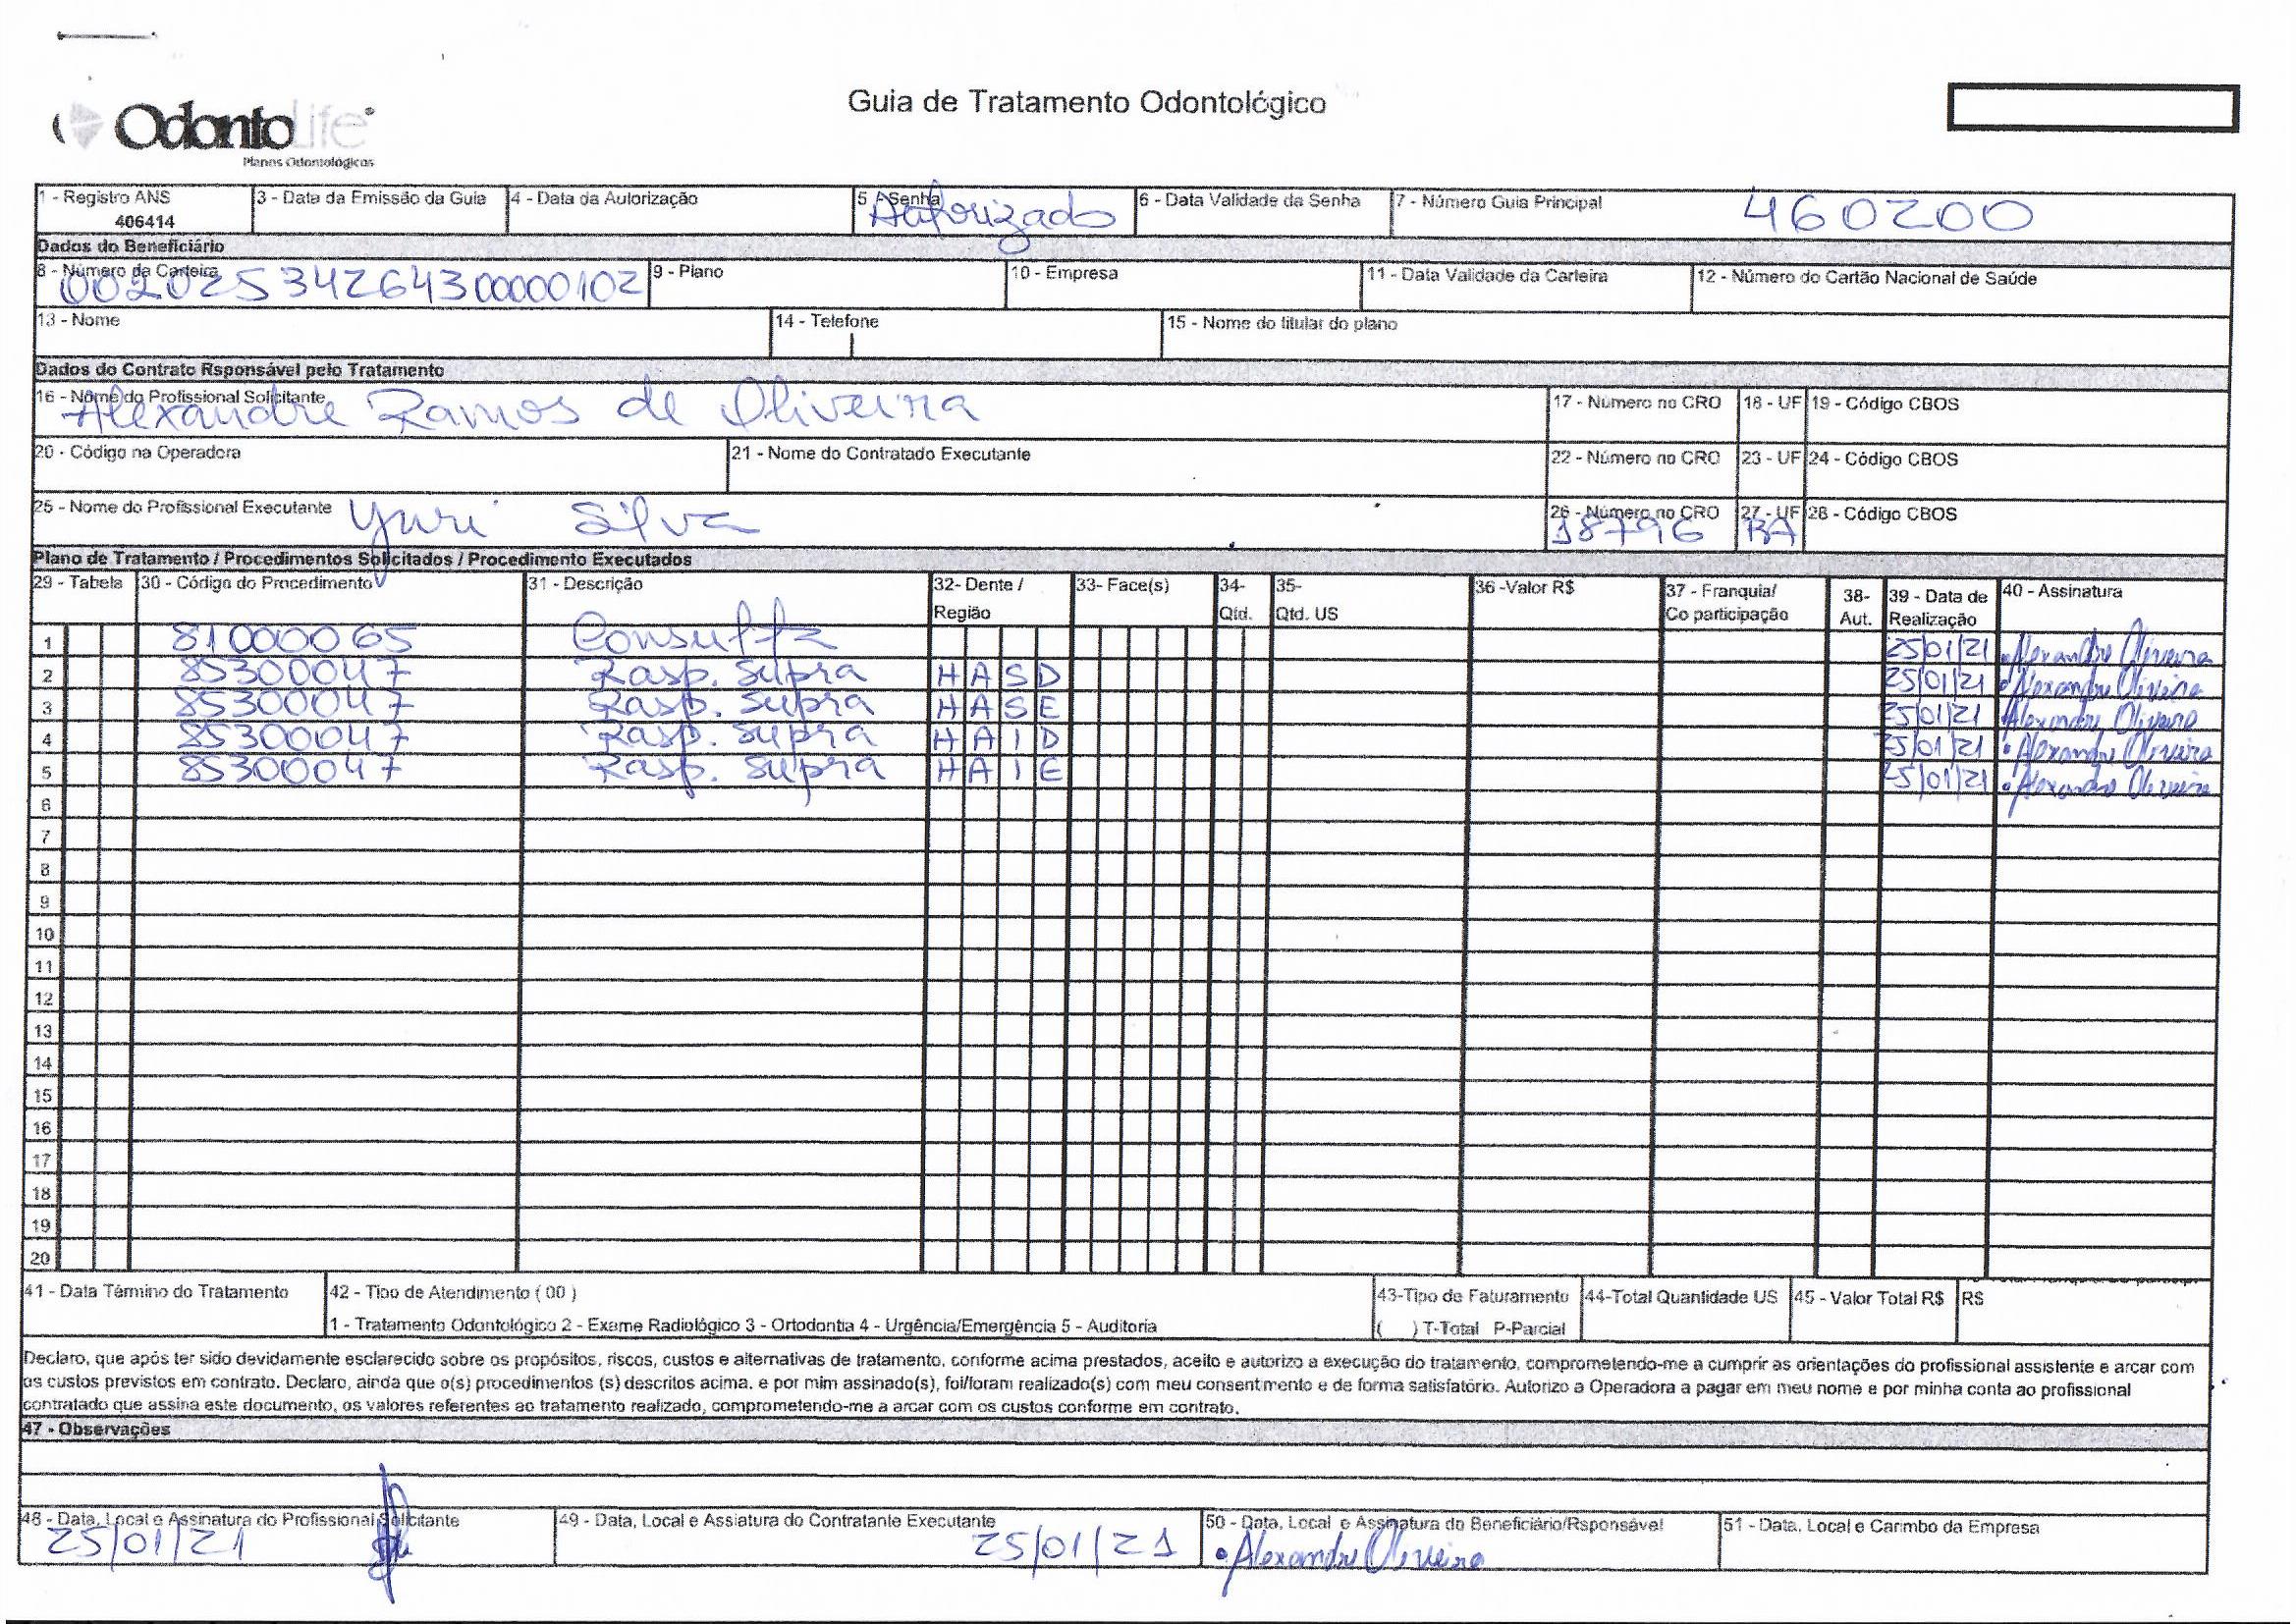 Guia de Tratamento Odontológico
OdontoLife
Planos Odontológicos
1 - Registro ANS 3 - Data da Emissão da Guia 4 - Data da Autorização 5 - Senha 6 - Data Validade da Senha 7 - Número Guia Principal
406414 Autorizado 460200
Dados do Beneficiário
8 - Número da Carteira 9 - Plano 10 - Empresa 11 - Data Validade da Carteira 12 - Número do Cartão Nacional de Saúde
00202534264300000102
13 - Nome 14 - Telefone 15 - Nome do titular do plano
Dados do Contrato Rsponsável pelo Tratamento
16 - Nome do Profissional Solicitante 17 - Número no CRO 18 - UF 19 - Código CBOS
Alexandre Ramos de Oliveira
20 - Código na Operadora 21 - Nome do Contratado Executante 22 - Número no CRO 23 - UF 24 - Código CBOS
25 - Nome do Profissional Executante Yuri Silva 26 - Número no CRO 27 - UF 28 - Código CBOS
18796 BA
Plano de Tratamento / Procedimentos Solicitados / Procedimento Executados
29 - Tabela 30 - Código do Procedimento 31 - Descrição 32- Dente / Região 33- Face(s) 34- Qtd. 35- Qtd. US 36 -Valor R$ 37 - Franquia/ Co participação 38- Aut. 39 - Data de Realização 40 - Assinatura
1 81000065 Consulta 25/01/21 Alexandre Oliveira
2 85300047 Rasp. Supra HASD 25/01/21 Alexandre Oliveira
3 85300047 Rasp. Supra HASE 25/01/21 Alexandre Oliveira
4 85300047 Rasp. Supra HAID 25/01/21 Alexandre Oliveira
5 85300047 Rasp. Supra HAIE 25/01/21 Alexandre Oliveira
6
7
8
9
10
11
12
13
14
15
16
17
18
19
20
41 - Data Término do Tratamento 42 - Tipo de Atendimento ( 00 ) 43-Tipo de Faturamento 44-Total Quantidade US 45 - Valor Total R$ R$
1 - Tratamento Odontológico 2 - Exame Radiológico 3 - Ortodontia 4 - Urgência/Emergência 5 - Auditoria ( ) T-Total P-Parcial
Declaro, que após ter sido devidamente esclarecido sobre os propósitos, riscos, custos e alternativas de tratamento, conforme acima prestados, aceito e autorizo a execução do tratamento, comprometendo-me a cumprir as orientações do profissional assistente e arcar com
os custos previstos em contrato. Declaro, ainda que o(s) procedimentos (s) descritos acima, e por mim assinado(s), foi/foram realizado(s) com meu consentimento e de forma satisfatório. Autorizo a Operadora a pagar em meu nome e por minha conta ao profissional
contratado que assina este documento, os valores referentes ao tratamento realizado, comprometendo-me a arcar com os custos conforme em contrato.
47 - Observações
48 - Data, Local e Assinatura do Profissional Solicitante 49 - Data, Local e Assiatura do Contratante Executante 50 - Data, Local e Assinatura do Beneficiário/Rsponsável 51 - Data, Local e Carimbo da Empresa
25/01/21 25/01/21 Alexandre Oliveira